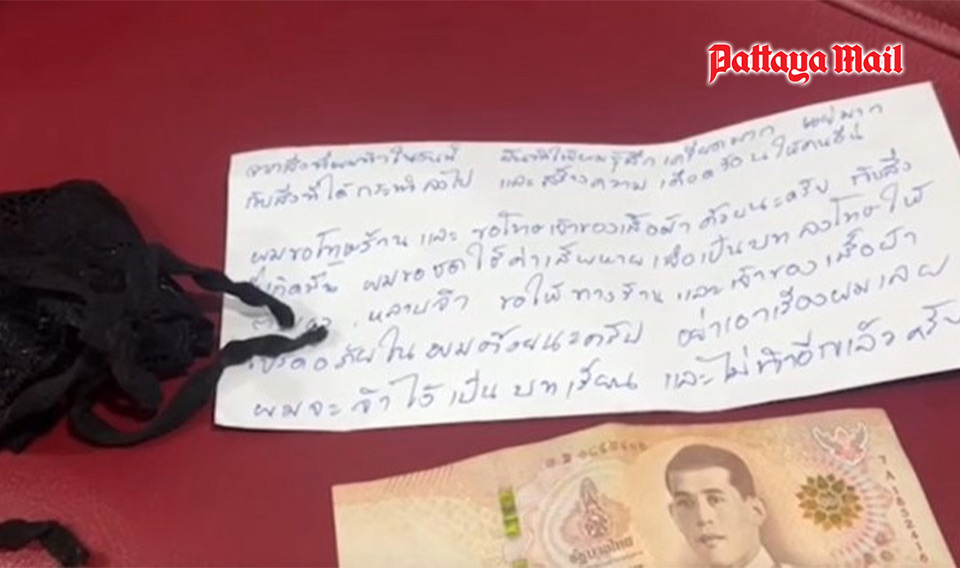 Pattaya Mail
จากสิ่งที่ผมทำในวันนี้ มันทำให้ผมรู้สึก เครียดมาก
กับสิ่งที่ได้กระทำลงไป และสร้างความเดือดร้อนให้คนอื่น
ผมขอโทษร้าน และ ขอโทษเจ้าของเสื้อผ้า ด้วยนะครับ กับสิ่ง
ที่เกิดขึ้น ผมขอชดใช้ค่าเสียหายเพื่อเป็นบทลงโทษให้
หลาบจำ ขอให้ทางร้าน และเจ้าของเสื้อผ้า
โปรดอภัยในผมด้วยนะครับ อย่าเอาเรื่องผมเลย
ผมจะจำไว้เป็นบทเรียน และไม่ทำอีกแล้วครับ
รัฐบาลไทย